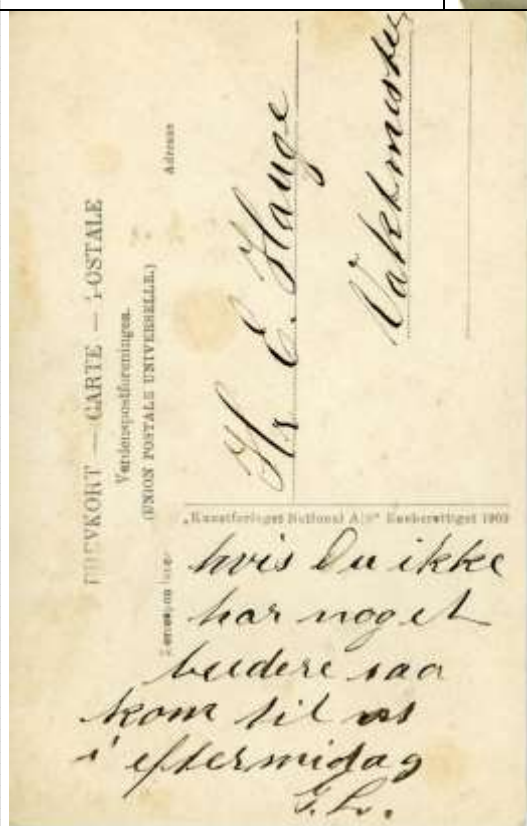 BREVKORT — CARTE — POSTALE
Verdenspostforeningen.
(UNION POSTALE UNIVERSELLE.)
Adresse
Hr E. Hauge
Vaktmester
„Kunstforlaget National A/S“ Eneberettiget 1903
hvis Du ikke
har noget
bedere saa
kom til os
i eftermidag